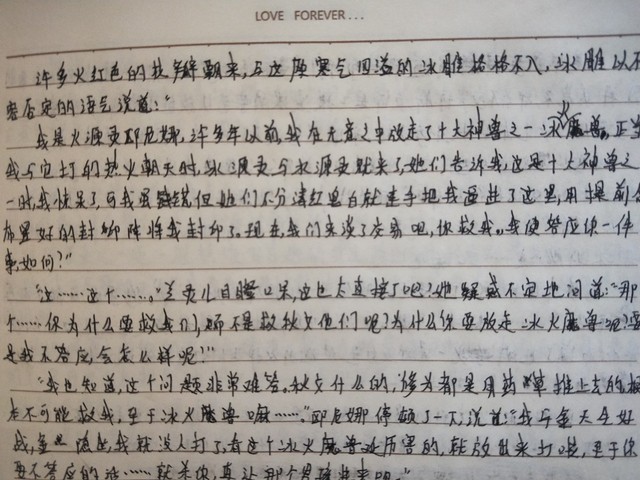 LOVE FOREVER...
许多火红色的花瓣朝来,与这原寒气四溢的冰雕格格不入,冰雕以不
容否定的语气说道:"
我是火源灵耶尼娜,许多年以前,我在无意之中放走了十大神兽之一冰魔兽,正当
我与它打的热火朝天时,冰源灵与水源灵赶来了,她们告诉我,这是十大神兽之
一时,我惊呆了,可我虽错但她们不分青红皂白就连手把我逼进了这里,用提前布
布置好的封印阵将我封印了。现在,我们来谈个交易吧,你救我。我便答应你一件
事,如何?"
"这……这个……。"兰灵儿目瞪口呆,这也太直接了吧?她疑惑不定地问道:"那
个……你为什么要救我们,而不是救秋文他们呢?为什么你要放走冰火魔兽呢?要
是我不答应,会怎么样呢?"
"我也知道,这个问题非常难答。秋文什么的,修为都是用药草推上去的,根
本不可能救我,至于冰火魔兽嘛……"耶尼娜停顿了一下,说道:"我与金天全好
战,金 我就没人打了,看这个冰火魔兽还厉害的,就放出来打啦,至于你
要不答应的话……就杀你,再让那个 进来吧。"